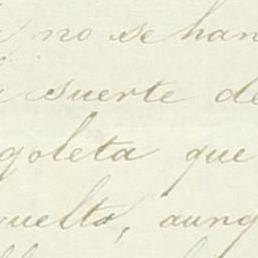 no se han
suerte de
goleta que
vuelto, aunq